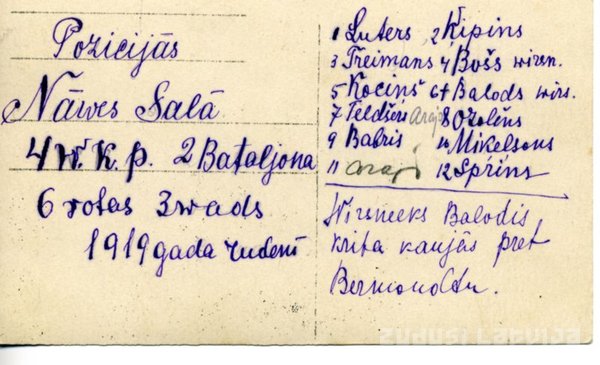 Pozicijās
Nāwes Salā
4 W. k. p. 2 Bataljona
6 rotas 3 wads
1919 gada rudenī
1 Luters 2 Ķipins
3 Treimans 4 Bošs wirsn.
5 Kociņš 6+ Balods wirs.
7 Feldšers Arajs 8 Ozoliņs
9 Babris 10 Mikelsons
11 Arajs 12 Spriņs
Wirsneeks Balodis
krita kaujās pret
Bermondtu.
ZUDUSI LATVIJA